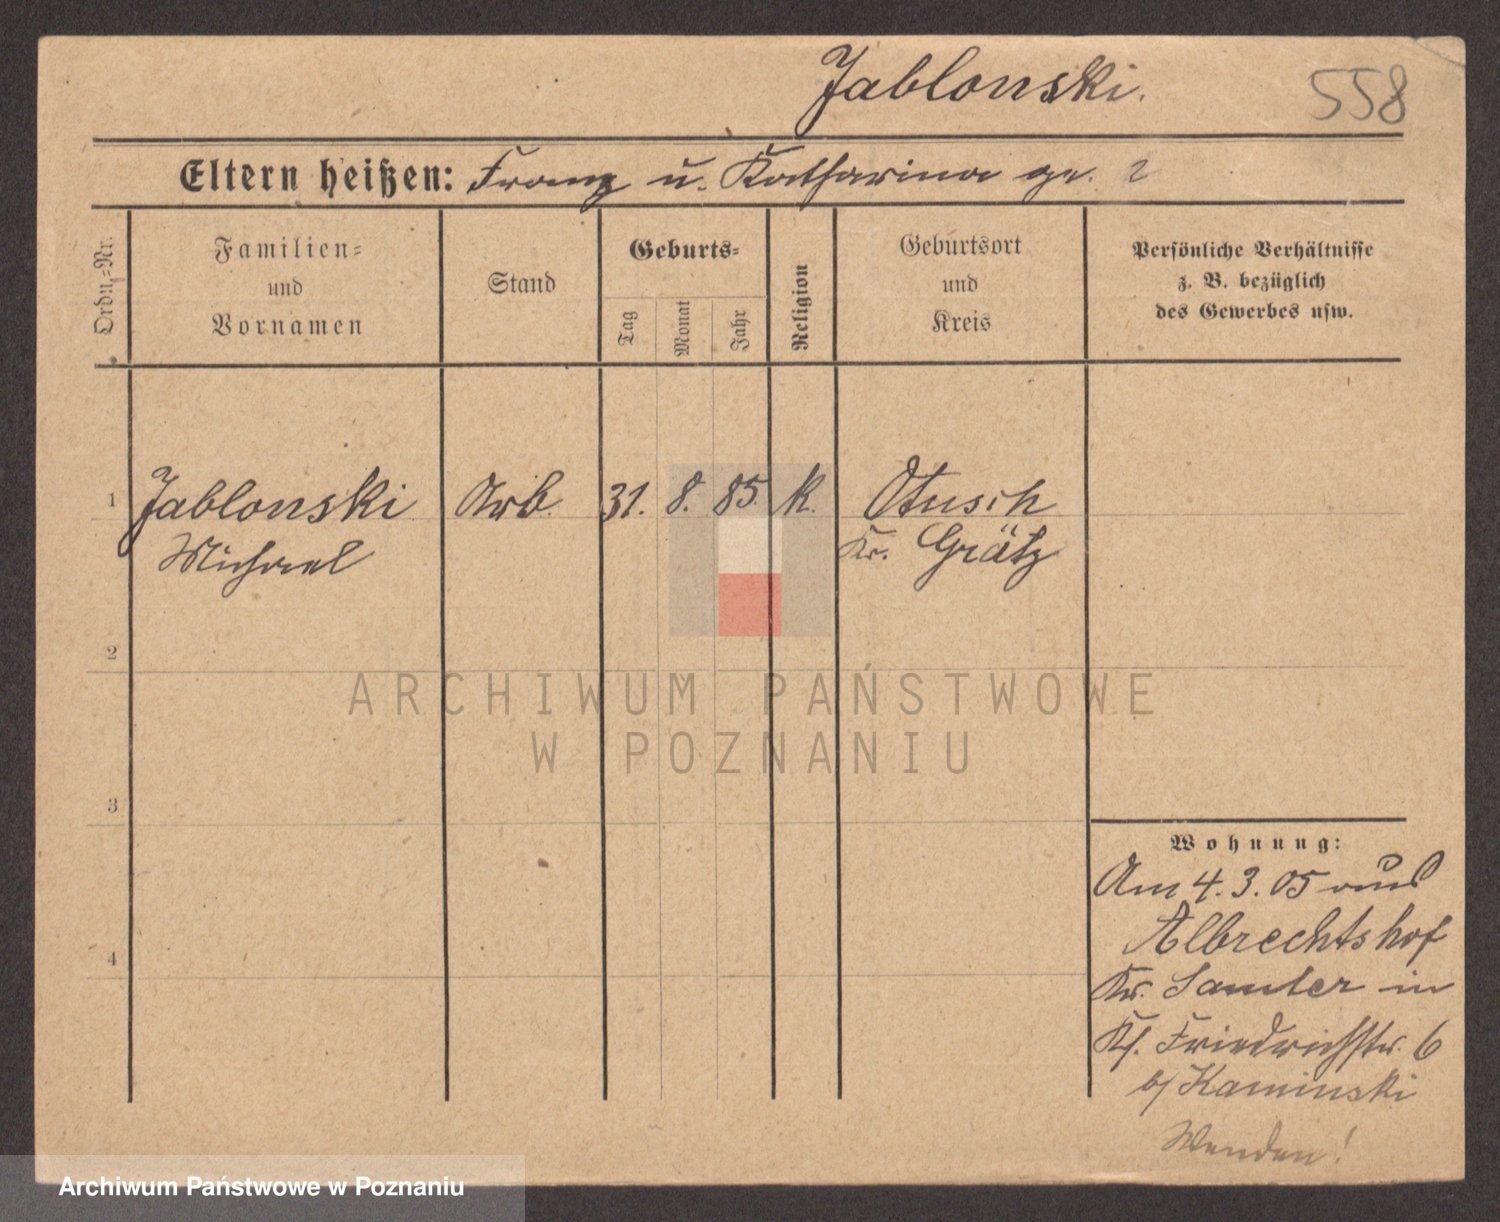 Jablonski.
558
Eltern heißen: Franz u. Katharina ge. ?
Ordn.=Nr.
Familien=
und
Vornamen
Stand
Geburts=
Tag
Monat
Jahr
Religion
Geburtsort
und
Kreis
Persönliche Verhältnisse
z. B. bezüglich
des Gewerbes usw.
1 Jablonski Arb. 31. 8. 85. k. Otusch
Michael Kr. Grätz
2
ARCHIWUM PAŃSTWOWE
W POZNANIU
3
Wohnung:
Am 4. 3. 05 aus
Albrechtshof
4
Kr. Samter in
Friedrichstr. 6
b/ Kaminski
Wenden!
Archiwum Państwowe w Poznaniu